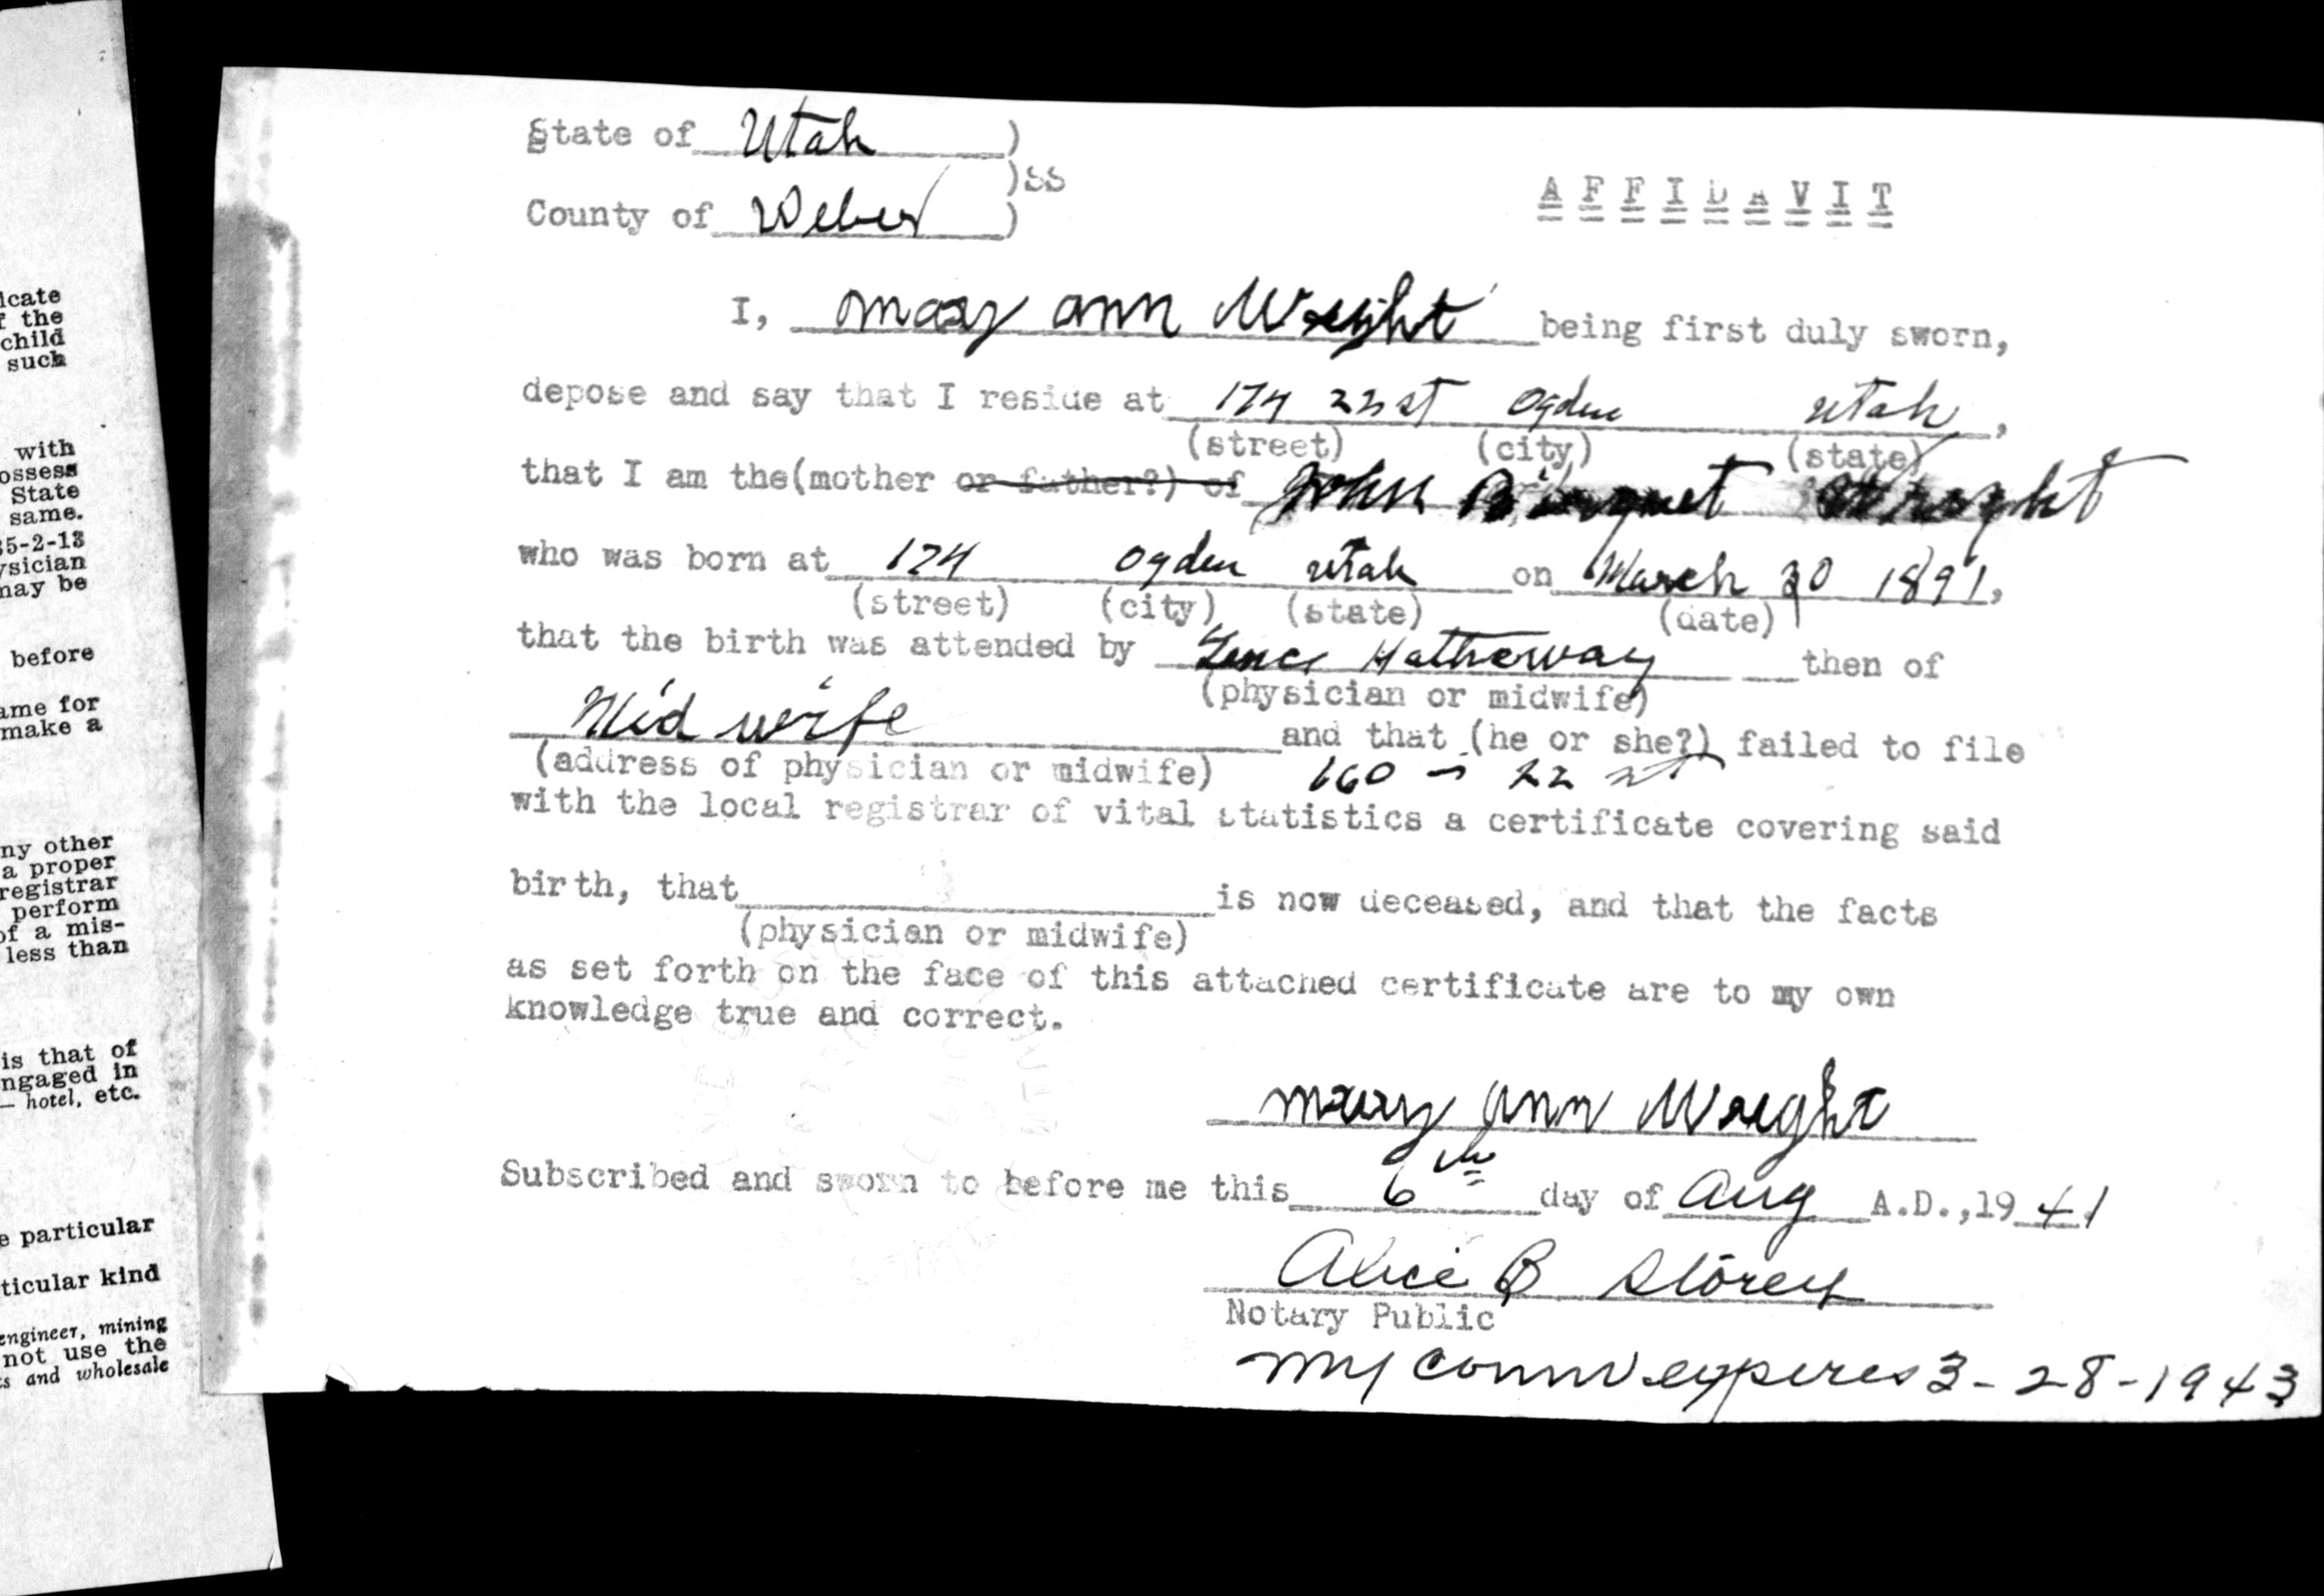 icate
f the
child
such
with
ossess
State
same.
35-2-13
ysician
may be
before
ame for
make a
ny other
a proper
registrar
perform
of a mis-
less than
is that of
ngaged in
— hotel, etc.
e particular
ticular kind
engineer, mining
not use the
s and wholesale
State of Utah )
)SS
County of Weber )
AFFIDAVIT
I, Mary Ann Wright being first duly sworn,
depose and say that I reside at 174 22 st Ogden Utah,
(street) (city) (state)
that I am the(mother or father?) of John Wright
who was born at 174 Ogden Utah on March 30 1891,
(street) (city) (state) (date)
that the birth was attended by Hatheway then of
(physician or midwife)
Mid wife and that (he or she?) failed to file
(address of physician or midwife) 160 - 22 st
with the local registrar of vital statistics a certificate covering said
birth, that is now deceased, and that the facts
(physician or midwife)
as set forth on the face of this attached certificate are to my own
knowledge true and correct.
Mary Ann Wright
Subscribed and sworn to before me this 6th day of Aug A.D.,1941
Alice B Storey
Notary Public
My comm expires 3-28-1943